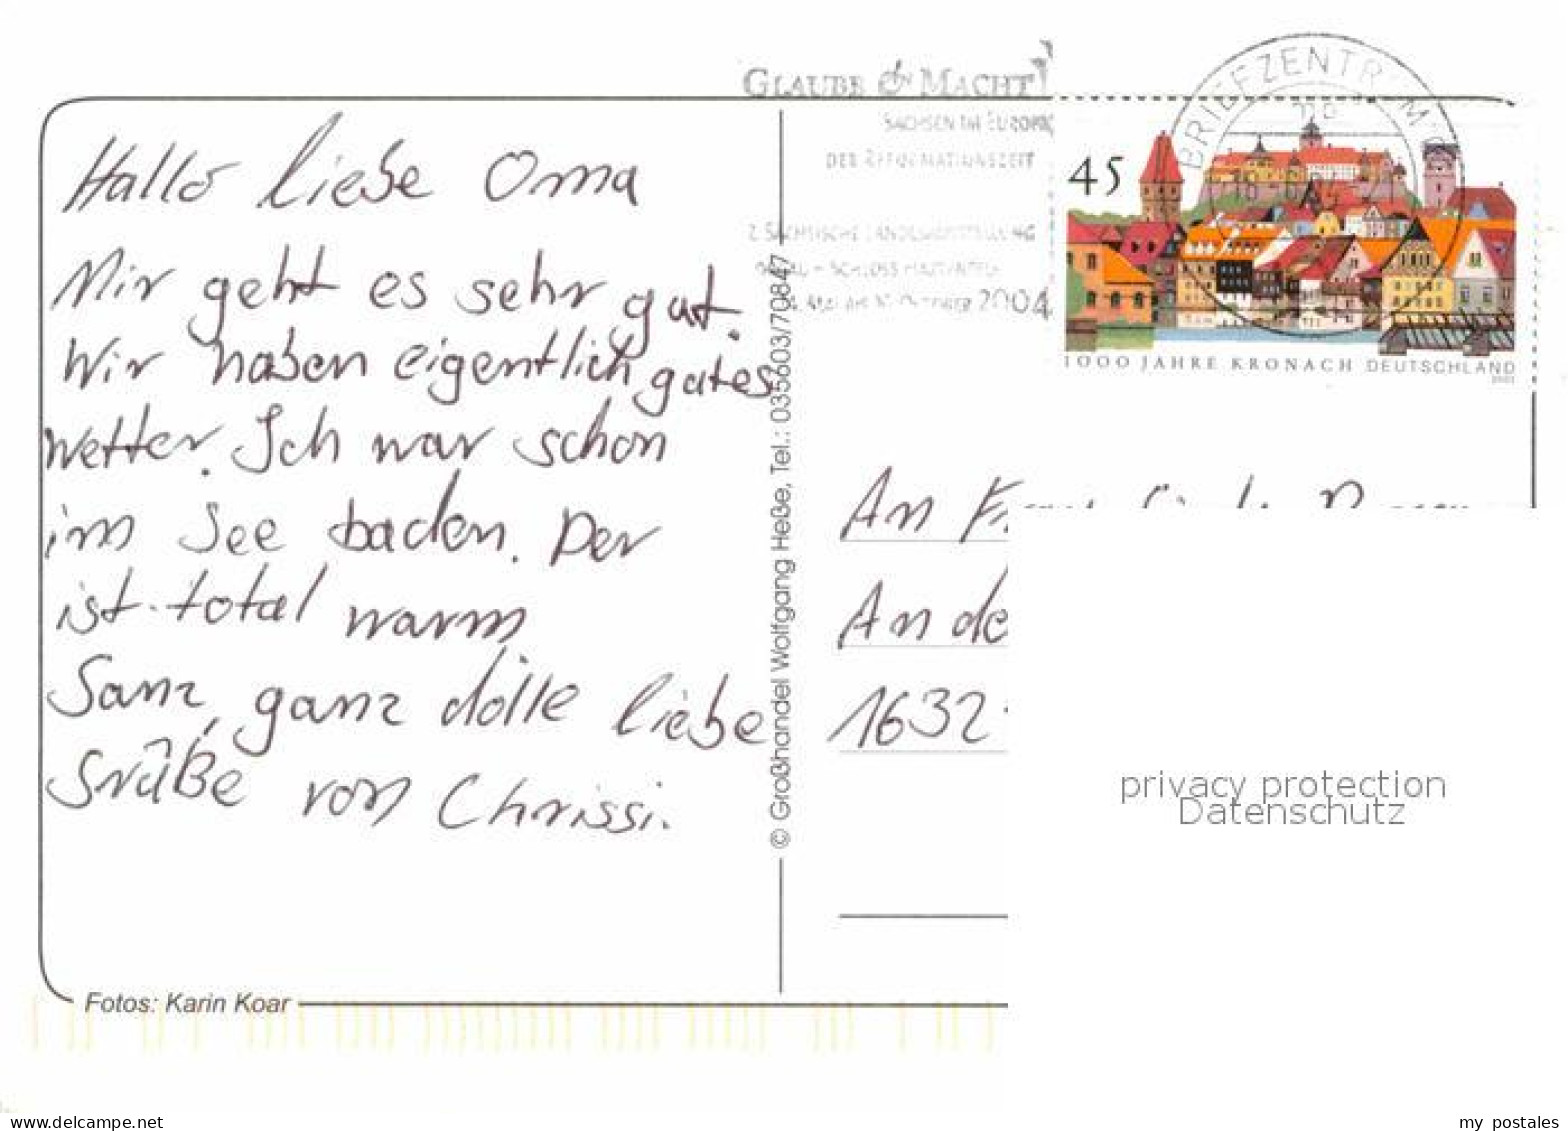 GLAUBE & MACHT
SACHSEN IM EUROPA
DER REFORMATIONSZEIT
2. SÄCHSISCHE LANDESAUSSTELLUNG
TORGAU – SCHLOSS HARTENFELS
2004
BRIEFZENTRUM
45
1000 JAHRE KRONACH DEUTSCHLAND
Hallo liebe Oma
Mir geht es sehr gut.
Wir haben eigentlich gutes
Wetter. Ich war schon
im See baden. Der
ist total warm
Ganz, ganz dolle liebe
Grüße von Chrissi.
© Großhandel Wolfgang Heße, Tel.: 035603/70847
An
An de
1632
privacy protection
Datenschutz
Fotos: Karin Koar
www.delcampe.net
my_postales